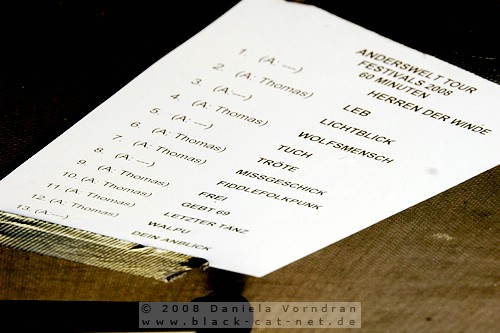 ANDERSWELT TOUR
FESTIVALS 2008
60 MINUTEN
1. (A: ---) HERREN DER WINDE
2. (A: Thomas) LEB
3. (A: ---) LICHTBLICK
4. (A: Thomas) WOLFSMENSCH
5. (A: ---) TUCH
6. (A: Thomas) TRÖTE
7. (A: Thomas) MISSGESCHICK
8. (A: ---) FIDDLEFOLKPUNK
9. (A: Thomas) FREI
10. (A: Thomas) GEBT 69
11. (A: Thomas) LETZTER TANZ
12. (A: Thomas) WALPU
13. (A: ---) DEIN ANBLICK
© 2008 Daniela Vorndran
www.black-cat-net.de